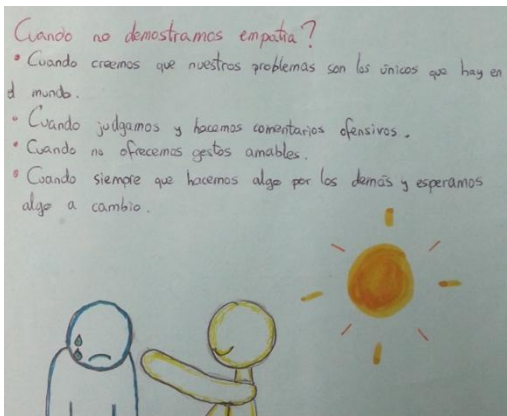 Cuando no demostramos empatía?
• Cuando creemos que nuestros problemas son los únicos que hay en
el mundo.
• Cuando judgamos y hacemos comentarios ofensivos.
• Cuando no ofrecemos gestos amables.
• Cuando siempre que hacemos algo por los demás y esperamos
algo a cambio.